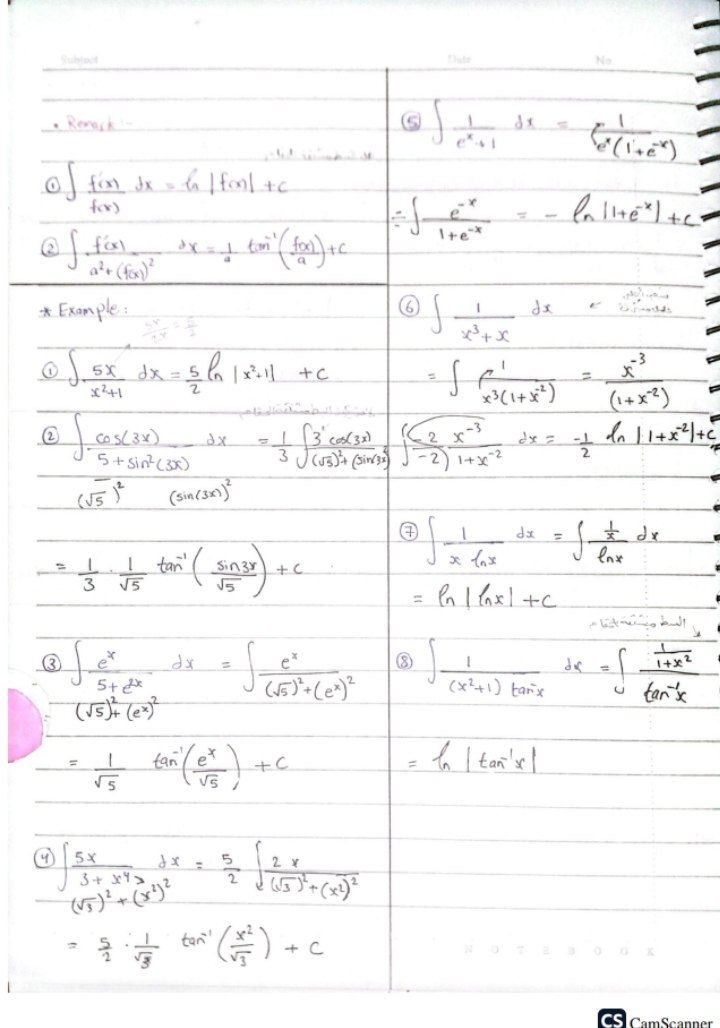 Subject
Date
No.
• Remark:-
① ∫ f'(x)/f(x) dx = ln |f(x)| + c
② ∫ f'(x)/(a² + (f(x))²) dx = 1/a tan⁻¹(f(x)/a) + c
* Example:
① ∫ 5x/(x²+1) dx = 5/2 ln |x²+1| + c
② ∫ cos(3x)/(5 + sin²(3x)) dx = 1/3 ∫ 3 cos(3x)/((√5)² + (sin3x)²
(√5)² (sin(3x))²
= 1/3 · 1/√5 tan⁻¹(sin3x/√5) + c
③ ∫ eˣ/(5 + e²ˣ) dx = ∫ eˣ/((√5)² + (eˣ)²)
(√5)² + (eˣ)²
= 1/√5 tan⁻¹(eˣ/√5) + c
④ ∫ 5x/(3 + x⁴) dx = 5/2 ∫ 2x/((√3)² + (x²)²)
(√3)² + (x²)²
= 5/2 · 1/√3 tan⁻¹(x²/√3) + c
⑤ ∫ 1/(eˣ+1) dx = 1/(eˣ(1+e⁻ˣ))
= ∫ e⁻ˣ/(1+e⁻ˣ) = - ln |1+e⁻ˣ| + c
⑥ ∫ 1/(x³+x) dx
= ∫ 1/(x³(1+x⁻²)) = x⁻³/(1+x⁻²)
∫ -2 x⁻³/(-2) 1+x⁻² dx = -1/2 ln |1+x⁻²| + c
⑦ ∫ 1/(x lnx) dx = ∫ (1/x)/lnx dx
= ln |lnx| + c
البسط مشتقة المقام
⑧ ∫ 1/((x²+1) tan⁻¹x) dx = ∫ (1/(1+x²))/tan⁻¹x
= ln |tan⁻¹x|
NOTEBOOK
CS CamScanner